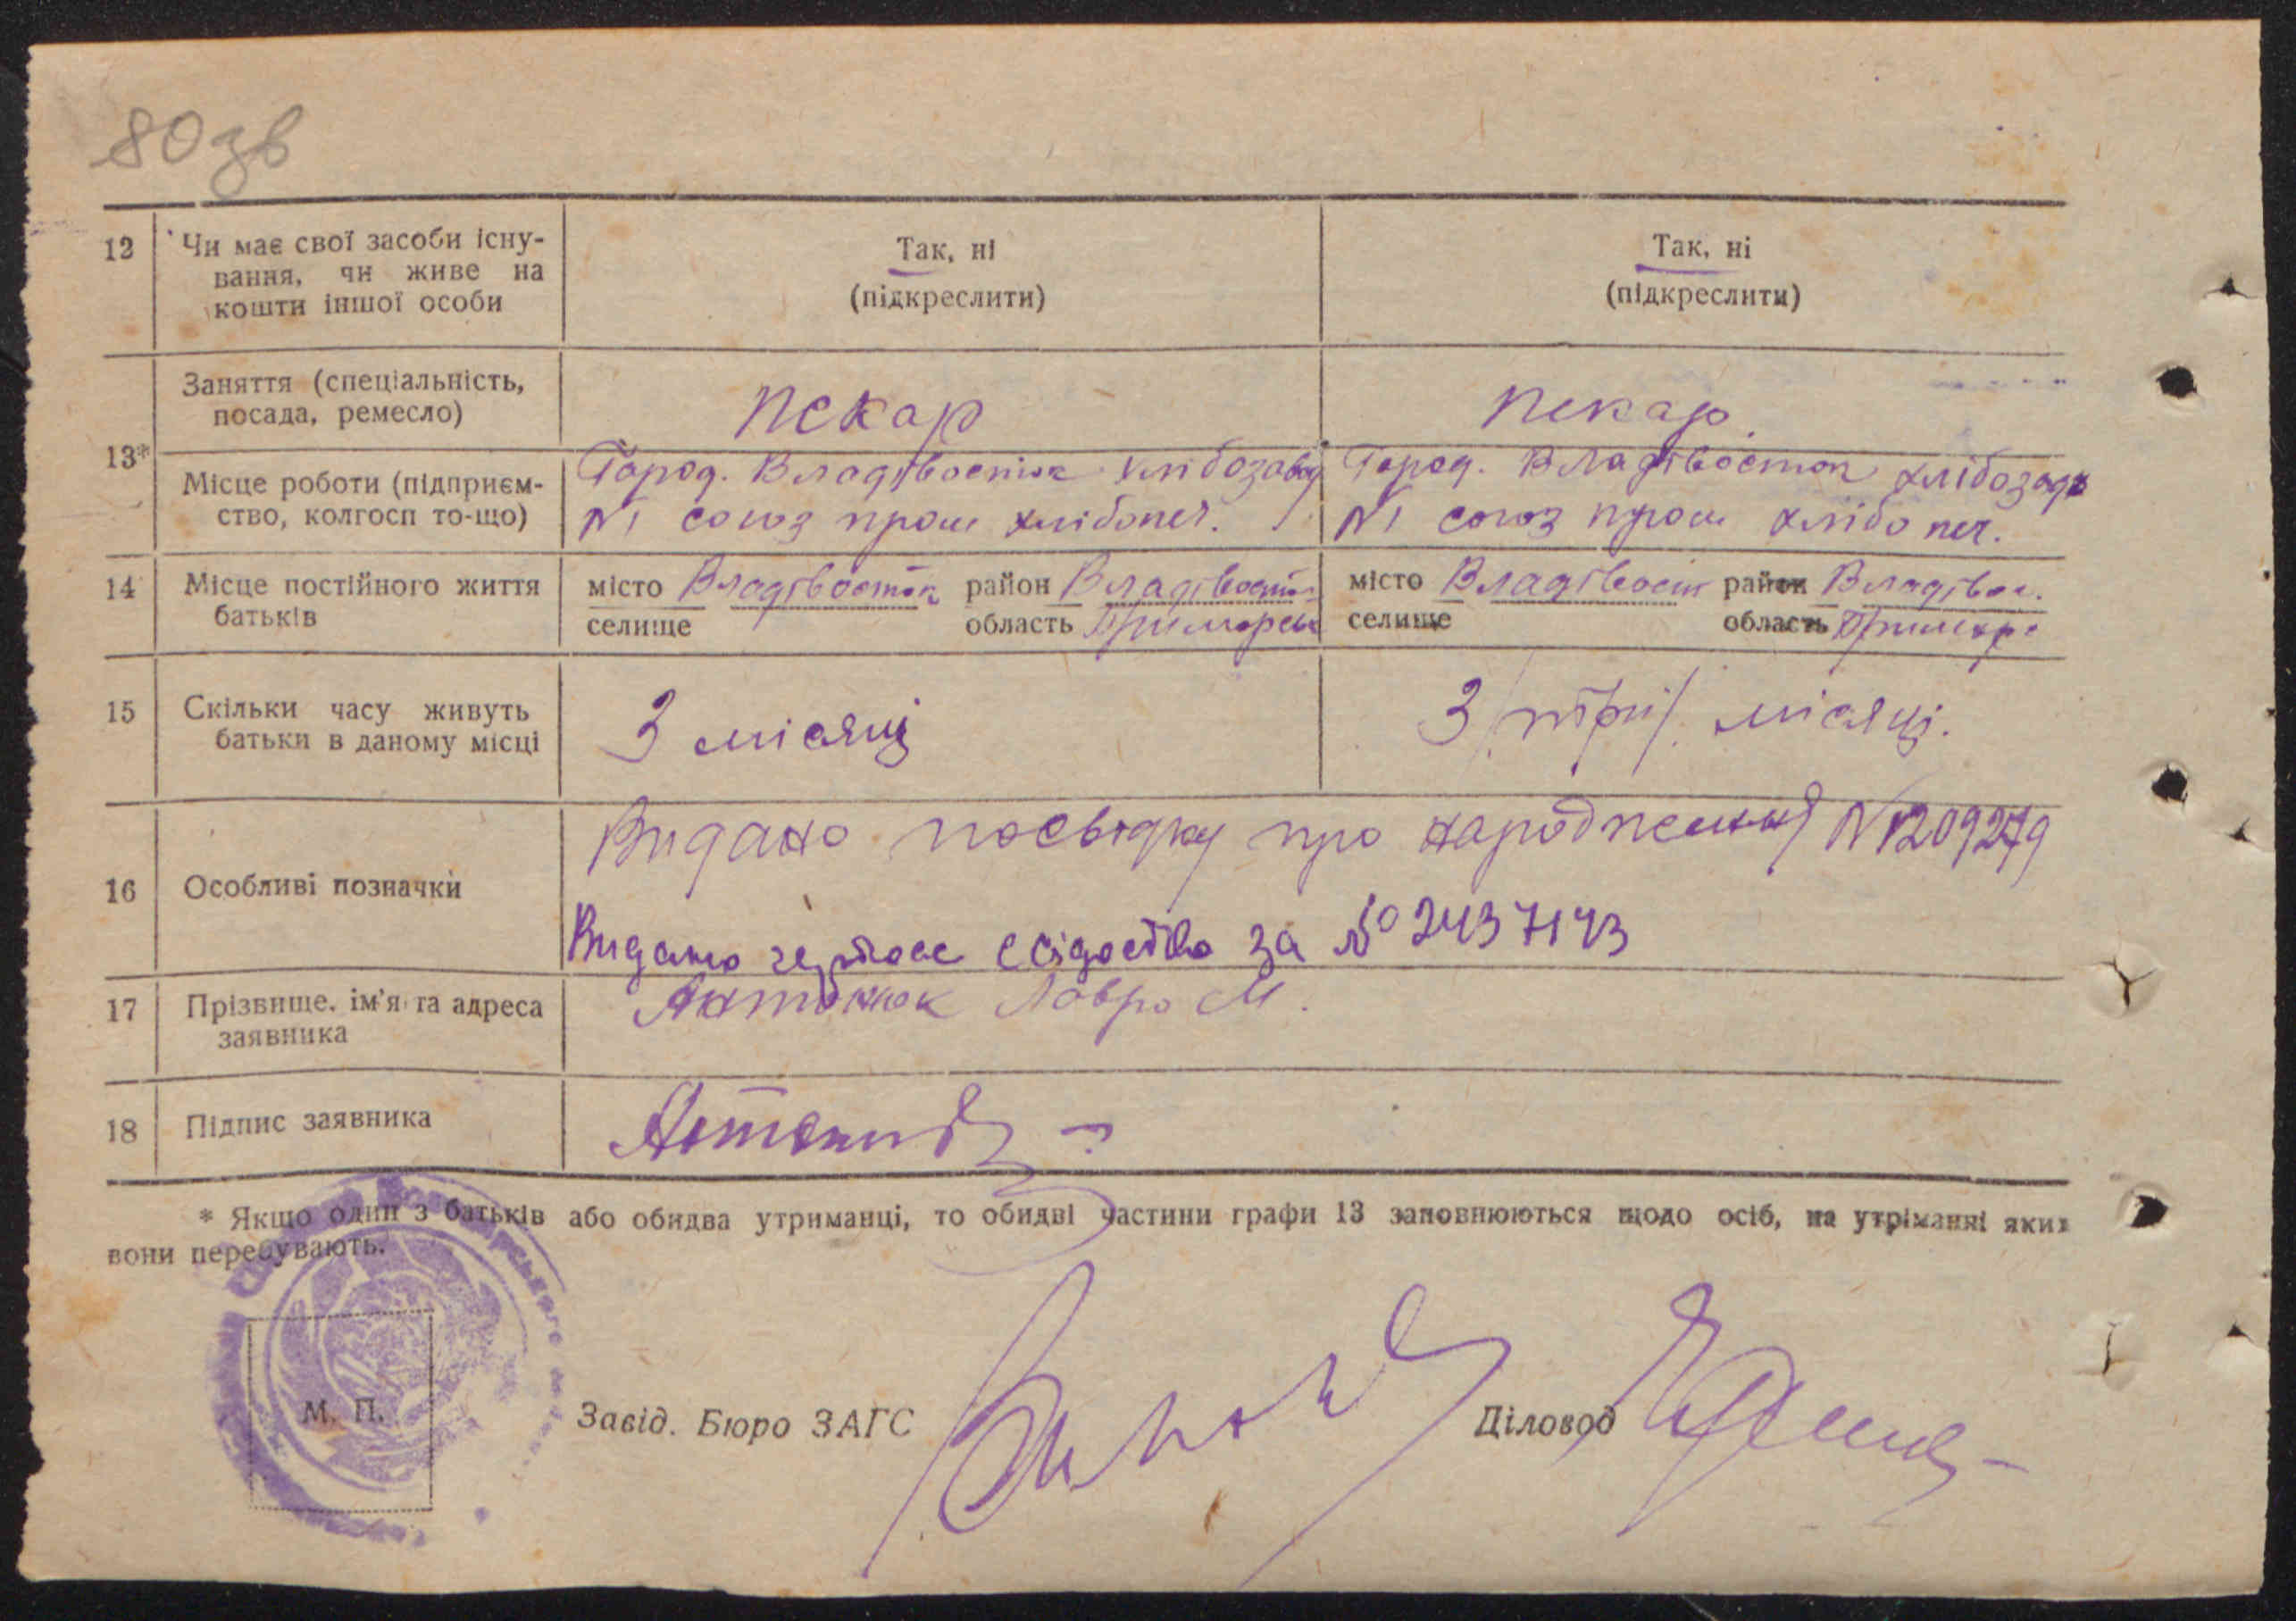 80 зв
12 Чи має свої засоби існу-
вання, чи живе на
кошти іншої особи
Так, ні
(підкреслити)
Так, ні
(підкреслити)
13*
Заняття (спеціальність,
посада, ремесло)
Пекар
Пекар
Місце роботи (підприєм-
ство, колгосп то-що)
Город. Владівосток хлібозавод
№1 союз пром хлібопеч.
Город. Владівосток хлібозавд
№1 союз пром хлібопеч.
14 Місце постійного життя
батьків
місто Владівосток район Владівосток
селище область Приморськ
місто Владівост район Владівос.
селище область Примор
15 Скільки часу живуть
батьки в даному місці
3 місяці
3 /три/ місяці.
16 Особливі позначки
Видано посвідку про народження №1209279
Видано свідоство за № 2437143
17 Прізвище, ім'я та адреса
заявника
Антонюк Лавро М.
18 Підпис заявника
* Якщо один з батьків або обидва утриманці, то обидві частини графи 13 заповнюються щодо осіб, на утріманні яких
вони перебувають.
М. П.
Завід. Бюро ЗАГС
Діловод